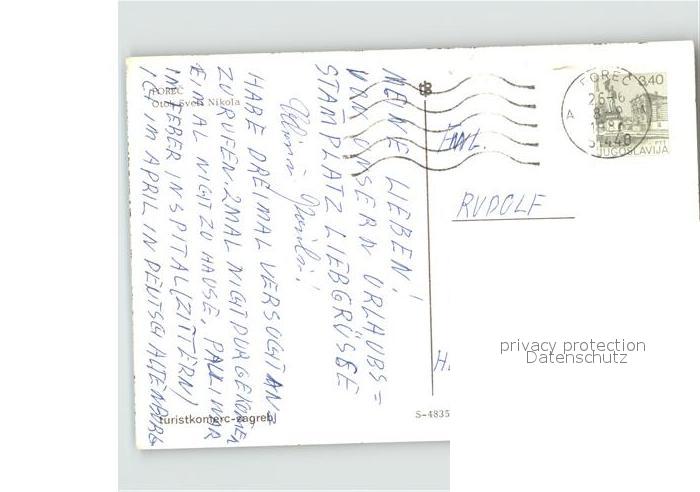 POREČ
Otok Sveti Nikola
MEINE LIEBEN!
VON UNSERN URLAUBS=
STAMPLATZ LIEBGRÜSSE
HABE DREIMAL VERSUGHT AN=
ZURUFEN. 2MAL NIGHT DURGEKOMMEN
EINMAL NIGHT ZU HAUSE, PAULI WAR
IM FEBER IN SPITAL (ZITTERN)
ICH IM APRIL IN DEUTSCH ALTENBURG
FAM.
RUDOLF
POREČ
26-06
51440
3,40
JUGOSLAVIJA
turistkomerc-zagreb
S-4835
privacy protection
Datenschutz